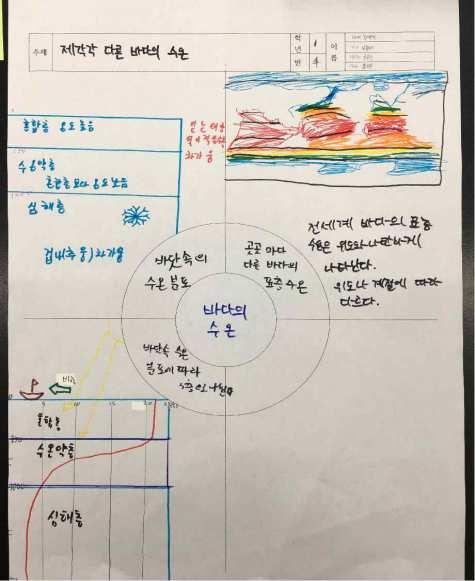 주제
제각각 다른 바다의 수온
학년
1
이름
번
4
혼합층 온도높음
수온약층
혼합층 보다 온도 낮음
심해층
겁내(추움)차가움
차가움
바닷속의
수온 분포
곳곳마다
다른 바다의
표층 수온
전세계 바다의 표층
수온은 위도와 나란하게
나타난다.
위도나 계절에 따라
다르다.
바다의
수온
바닷속 수온
분포에 따라
바람
5
10
15
20
혼합층
수온약층
1000
심해층